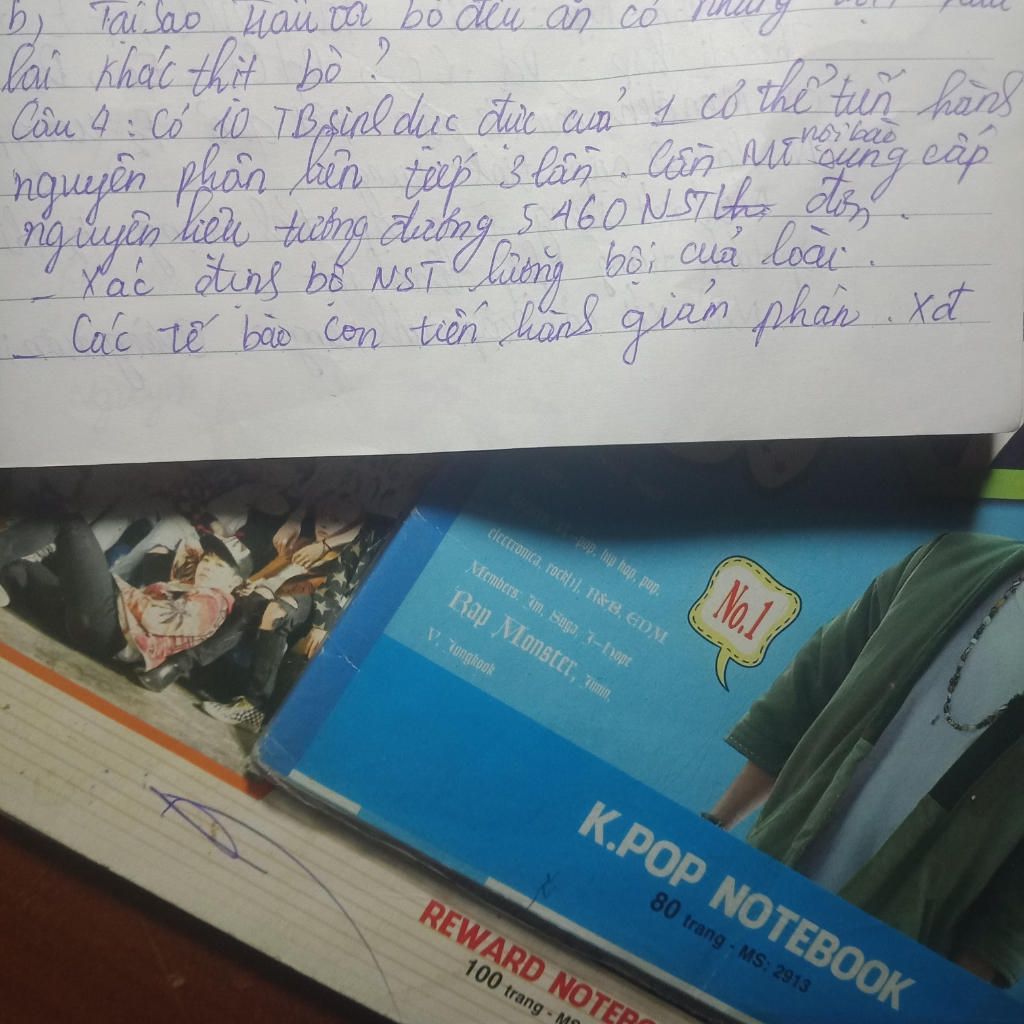 b, Tại sao trâu và bò đều ăn cỏ nhưng
lại khác thịt bò ?
Câu 4 : Có 10 TB sinh dục đực của 1 cơ thể tiến hành
nguyên phân liên tiếp 3 lần . Cần MT nội bào cung cấp
nguyên liệu tương đương 5460 NST đơn .
- Xác định bộ NST lưỡng bội của loài .
- Các tế bào con tiến hành giảm phân . Xđ
K-pop, hip hop, pop,
electronica, rock[1], R&B, EDM
Members: Jin, Suga, J-Hope
Rap Monster, Jimin,
V, Jungkook
No.1
K.POP NOTEBOOK
80 trang - MS: 2913
REWARD NOTEBO
100 trang - MS